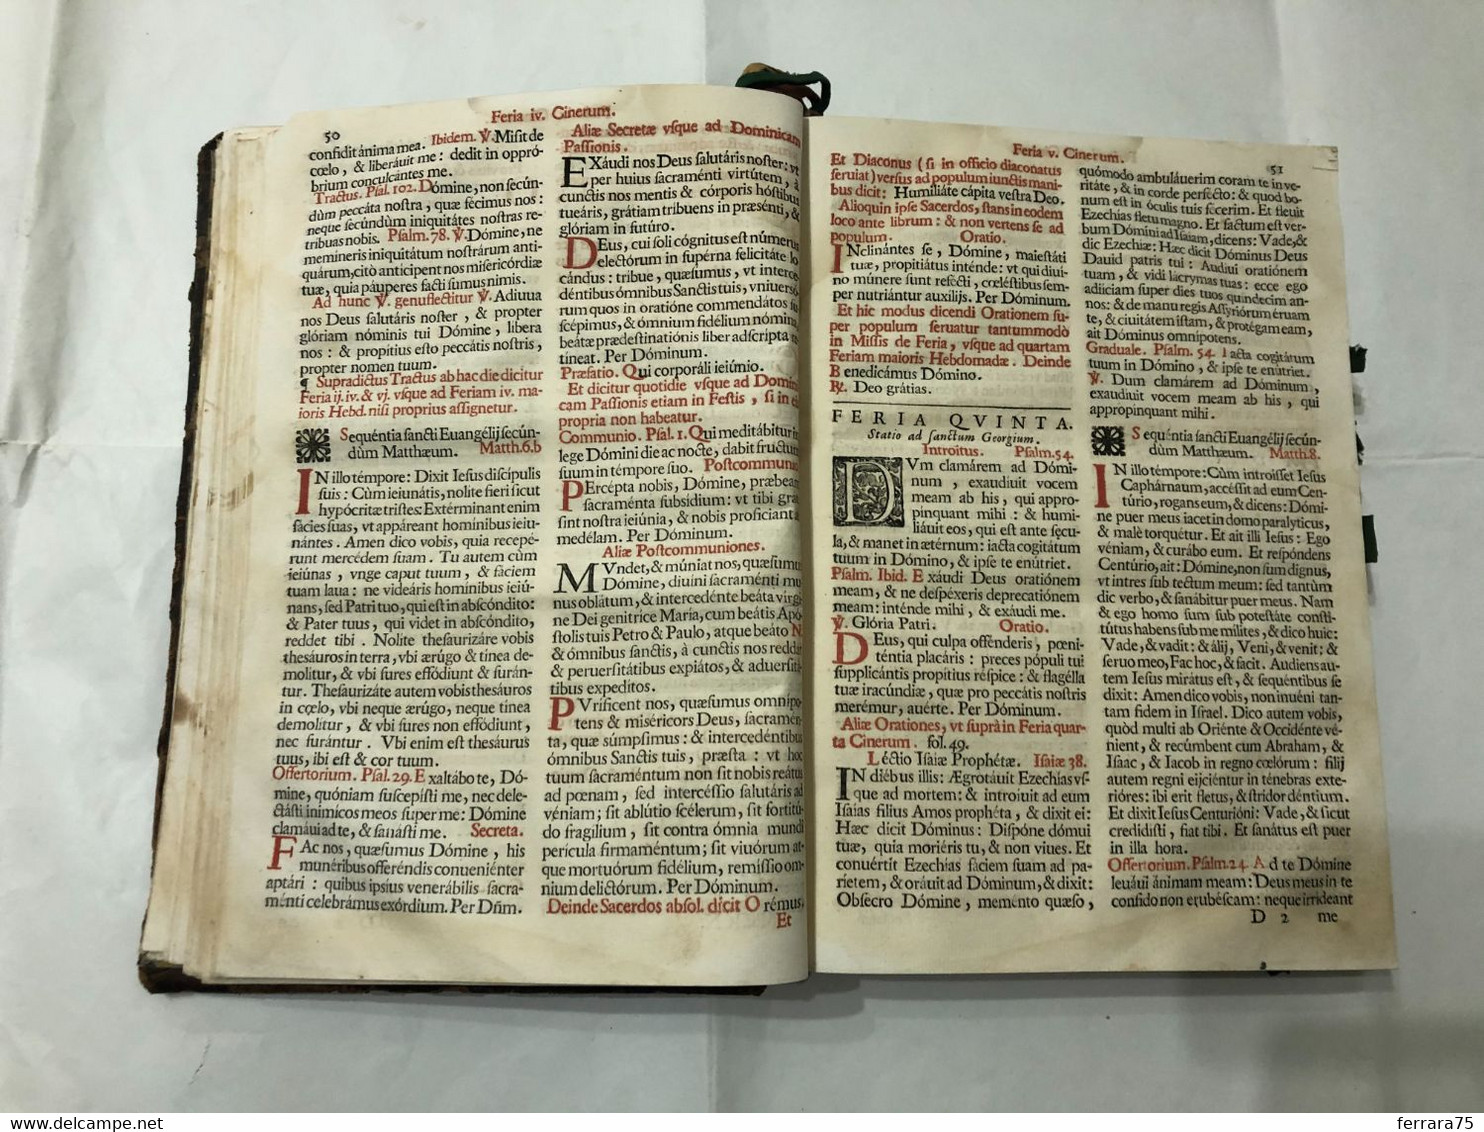 50
Feria iv. Cinerum.
confidit ánima mea. Ibidem. ℣. Misit de
cœlo, & liberáuit me: dedit in oppró-
brium conculcantes me.
Tractus. Psal. 102. Dómine, non secún-
dùm peccáta nostra, quæ fecimus nos:
neque secúndùm iniquitátes nostras re-
tribuas nobis. Psalm. 78. ℣. Dómine, ne
memineris iniquitátum nostrárum anti-
quárum, citò anticipent nos misericórdiæ
tuæ, quia páuperes facti sumus nimis.
Ad hunc ℣. genuflectitur ℣. Adiuua
nos Deus salutáris noster, & propter
glóriam nóminis tui Dómine, libera
nos: & propitius esto peccátis nostris,
propter nomen tuum.
¶ Supradictus Tractus ab hac die dicitur
Feria ij. iv. & vj. vsque ad Feriam iv. ma-
ioris Hebd. nisi proprius assignetur.
Sequéntia sancti Euangélij secún-
dùm Matthæum. Matth. 6. b
IN illo témpore: Dixit Iesus discípulis
suis: Cùm ieiunátis, nolite fieri sicut
hypócritæ tristes: Extérminant enim
fácies suas, vt appáreant hominibus ieiu-
nántes. Amen dico vobis, quia recepé-
runt mercédem suam. Tu autem cùm
ieiúnas, vnge caput tuum, & fáciem
tuam laua: ne videáris hominibus ieiú-
nans, sed Patri tuo, qui est in abscóndito:
& Pater tuus, qui videt in abscóndito,
reddet tibi. Nolite thesaurizáre vobis
thesáuros in terra, vbi ærúgo & tinea de-
molitur, & vbi fures effódiunt & furán-
tur. Thesaurizáte autem vobis thesáuros
in cœlo, vbi neque ærúgo, neque tinea
demolitur, & vbi fures non effódiunt,
nec furántur. Vbi enim est thesáurus
tuus, ibi est & cor tuum.
Offertorium. Psal. 29. Exaltábo te, Dó-
mine, quóniam suscepísti me, nec dele-
ctásti inimicos meos super me: Dómine
clamáui ad te, & sanásti me. Secreta.
FAc nos, quæsumus Dómine, his
munéribus offeréndis conueniénter
aptári: quibus ipsius venerábilis sacra-
ménti celebrámus exórdium. Per Dñm.
Aliæ Secretæ vsque ad Dominicam
Passionis.
EXáudi nos Deus salutáris noster: vt
per huius sacraménti virtútem, à
cunctis nos mentis & córporis hóstibus
tueáris, grátiam tribuens in præsénti, &
glóriam in futúro.
DEus, cui soli cógnitus est númerus
electórum in supérna felicitáte lo
cándus: tribue, quæsumus, vt interce
déntibus ómnibus Sanctis tuis, vniuersó
rum quos in oratióne commendátos su
scépimus, & ómnium fidélium nómina
beátæ prædestinatiónis liber adscripta re
tineat. Per Dóminum.
Præfatio. Qui corporáli ieiúnio.
Et dicitur quotidie vsque ad Domini
cam Passionis etiam in Festis, si in ei
propria non habeatur.
Communio. Psal. 1. Qui meditábitur in
lege Dómini die ac nocte, dabit fructum
suum in témpore suo. Postcommunio.
PErcépta nobis, Dómine, præbeant
sacraménta subsidium: vt tibi grata
sint nostra ieiúnia, & nobis proficiant ad
medélam. Per Dóminum.
Aliæ Postcommuniones.
MVndet, & múniat nos, quæsumus
Dómine, diuini sacraménti mu
nus oblátum, & intercedénte beáta virgi
ne Dei genitríce María, cum beátis Apó
stolis tuis Petro & Paulo, atque beáto N.
& ómnibus sanctis, à cunctis nos reddat
& peruersitátibus expiátos, & aduersitá
tibus expeditos.
PVrificent nos, quæsumus omnípo
tens & miséricors Deus, sacramén
ta, quæ súmpsimus: & intercedéntibus
ómnibus Sanctis tuis, præsta: vt hoc
tuum sacraméntum non sit nobis reátus
ad pœnam, sed intercéssio salutáris ad
véniam; sit ablútio scélerum, sit fortitú-
do fragilium, sit contra ómnia mundi
perícula firmaméntum; sit viuórum at-
que mortuórum fidélium, remíssio om-
nium delictórum. Per Dóminum.
Deinde Sacerdos absol. dicit Orémus.
Et
Feria v. Cinerum.
51
Et Diaconus (si in officio diaconatus
seruiat) versus ad populum iunctis mani-
bus dicit: Humiliáte cápita vestra Deo.
Alioquin ipse Sacerdos, stans in eodem
loco ante librum: & non vertens se ad
populum. Oratio.
INclinántes se, Dómine, maiestáti
tuæ, propitiátus inténde: vt qui diui-
no múnere sunt refécti, cœléstibus sem-
per nutriántur auxílijs. Per Dóminum.
Et hic modus dicendi Orationem su-
per populum seruatur tantummodò
in Missis de Feria, vsque ad quartam
Feriam maioris Hebdomadæ. Deinde
Benedicámus Dómino.
℟. Deo grátias.
FERIA QVINTA.
Statio ad sanctum Georgium.
Introitus. Psalm. 54.
DVm clamárem ad Dómi-
num, exaudiuit vocem
meam ab his, qui appro-
pinquant mihi: & humi-
liáuit eos, qui est ante sęcu-
la, & manet in ætérnum: iacta cogitátum
tuum in Dómino, & ipse te enútriet.
Psalm. Ibid. Exáudi Deus oratiónem
meam, & ne despéxeris deprecatiónem
meam: inténde mihi, & exáudi me.
℣. Glória Patri. Oratio.
DEus, qui culpa offénderis, pœni-
téntia placáris: preces pópuli tui
supplicántis propitius réspice: & flagélla
tuæ iracúndiæ, quæ pro peccátis nostris
merémur, auérte. Per Dóminum.
Aliæ Orationes, vt suprà in Feria quar-
ta Cinerum. fol. 49.
Léctio Isaiæ Prophétæ. Isaiæ 38.
IN diébus illis: Ægrotáuit Ezechías vs-
que ad mortem: & introiuit ad eum
Isaías filius Amos prophéta, & dixit ei:
Hæc dicit Dóminus: Dispóne dómui
tuæ, quia moriéris tu, & non viues. Et
conuértit Ezechías fáciem suam ad pa-
ríetem, & oráuit ad Dóminum, & dixit:
Obsecro Dómine, memento quæso,
quómodo ambuláuerim coram te in ve-
ritáte, & in corde perfécto: & quod bo-
num est in óculis tuis fécerim. Et fleuit
Ezechías fletu magno. Et factum est ver-
bum Dómini ad Isaíam, dicens: Vade, &
dic Ezechiæ: Hæc dicit Dóminus Deus
Dauid patris tui: Audiui oratiónem
tuam, & vidi lacrymas tuas: ecce ego
adiíciam super dies tuos quindecim an-
nos: & de manu regis Assyriórum éruam
te, & ciuitátem istam, & prótegam eam,
ait Dóminus omnipotens.
Graduale. Psalm. 54. Iacta cogitátum
tuum in Dómino, & ipse te enútriet.
℣. Dum clamárem ad Dóminum,
exaudiuit vocem meam ab his, qui
appropinquant mihi.
Sequéntia sancti Euangélij secún-
dùm Matthæum. Matth. 8.
IN illo témpore: Cùm introisset Iesus
Caphárnaum, accéssit ad eum Cen-
túrio, rogans eum, & dicens: Dómi-
ne puer meus iacet in domo paralyticus,
& malè torquétur. Et ait illi Iesus: Ego
véniam, & curábo eum. Et respóndens
Centúrio, ait: Dómine, non sum dignus,
vt intres sub tectum meum: sed tantùm
dic verbo, & sanábitur puer meus. Nam
& ego homo sum sub potestáte consti-
tútus habens sub me milites, & dico huic:
Vade, & vadit: & álij, Veni, & venit: &
seruo meo, Fac hoc, & facit. Audiens au-
tem Iesus mirátus est, & sequéntibus se
dixit: Amen dico vobis, non inuéni tan-
tam fidem in Israel. Dico autem vobis,
quòd multi ab Oriénte & Occidénte vé-
nient, & recúmbent cum Abraham, &
Isaac, & Iacob in regno cœlórum: filij
autem regni eijciéntur in ténebras exte-
rióres: ibi erit fletus, & stridor déntium.
Et dixit Iesus Centurióni: Vade, & sicut
credidísti, fiat tibi. Et sanátus est puer
in illa hora.
Offertorium. Psalm. 24. Ad te Dómine
leuáui ánimam meam: Deus meus in te
confido non erubéscam: neque irrídeant
D 2 me
www.delcampe.net
ferrara75